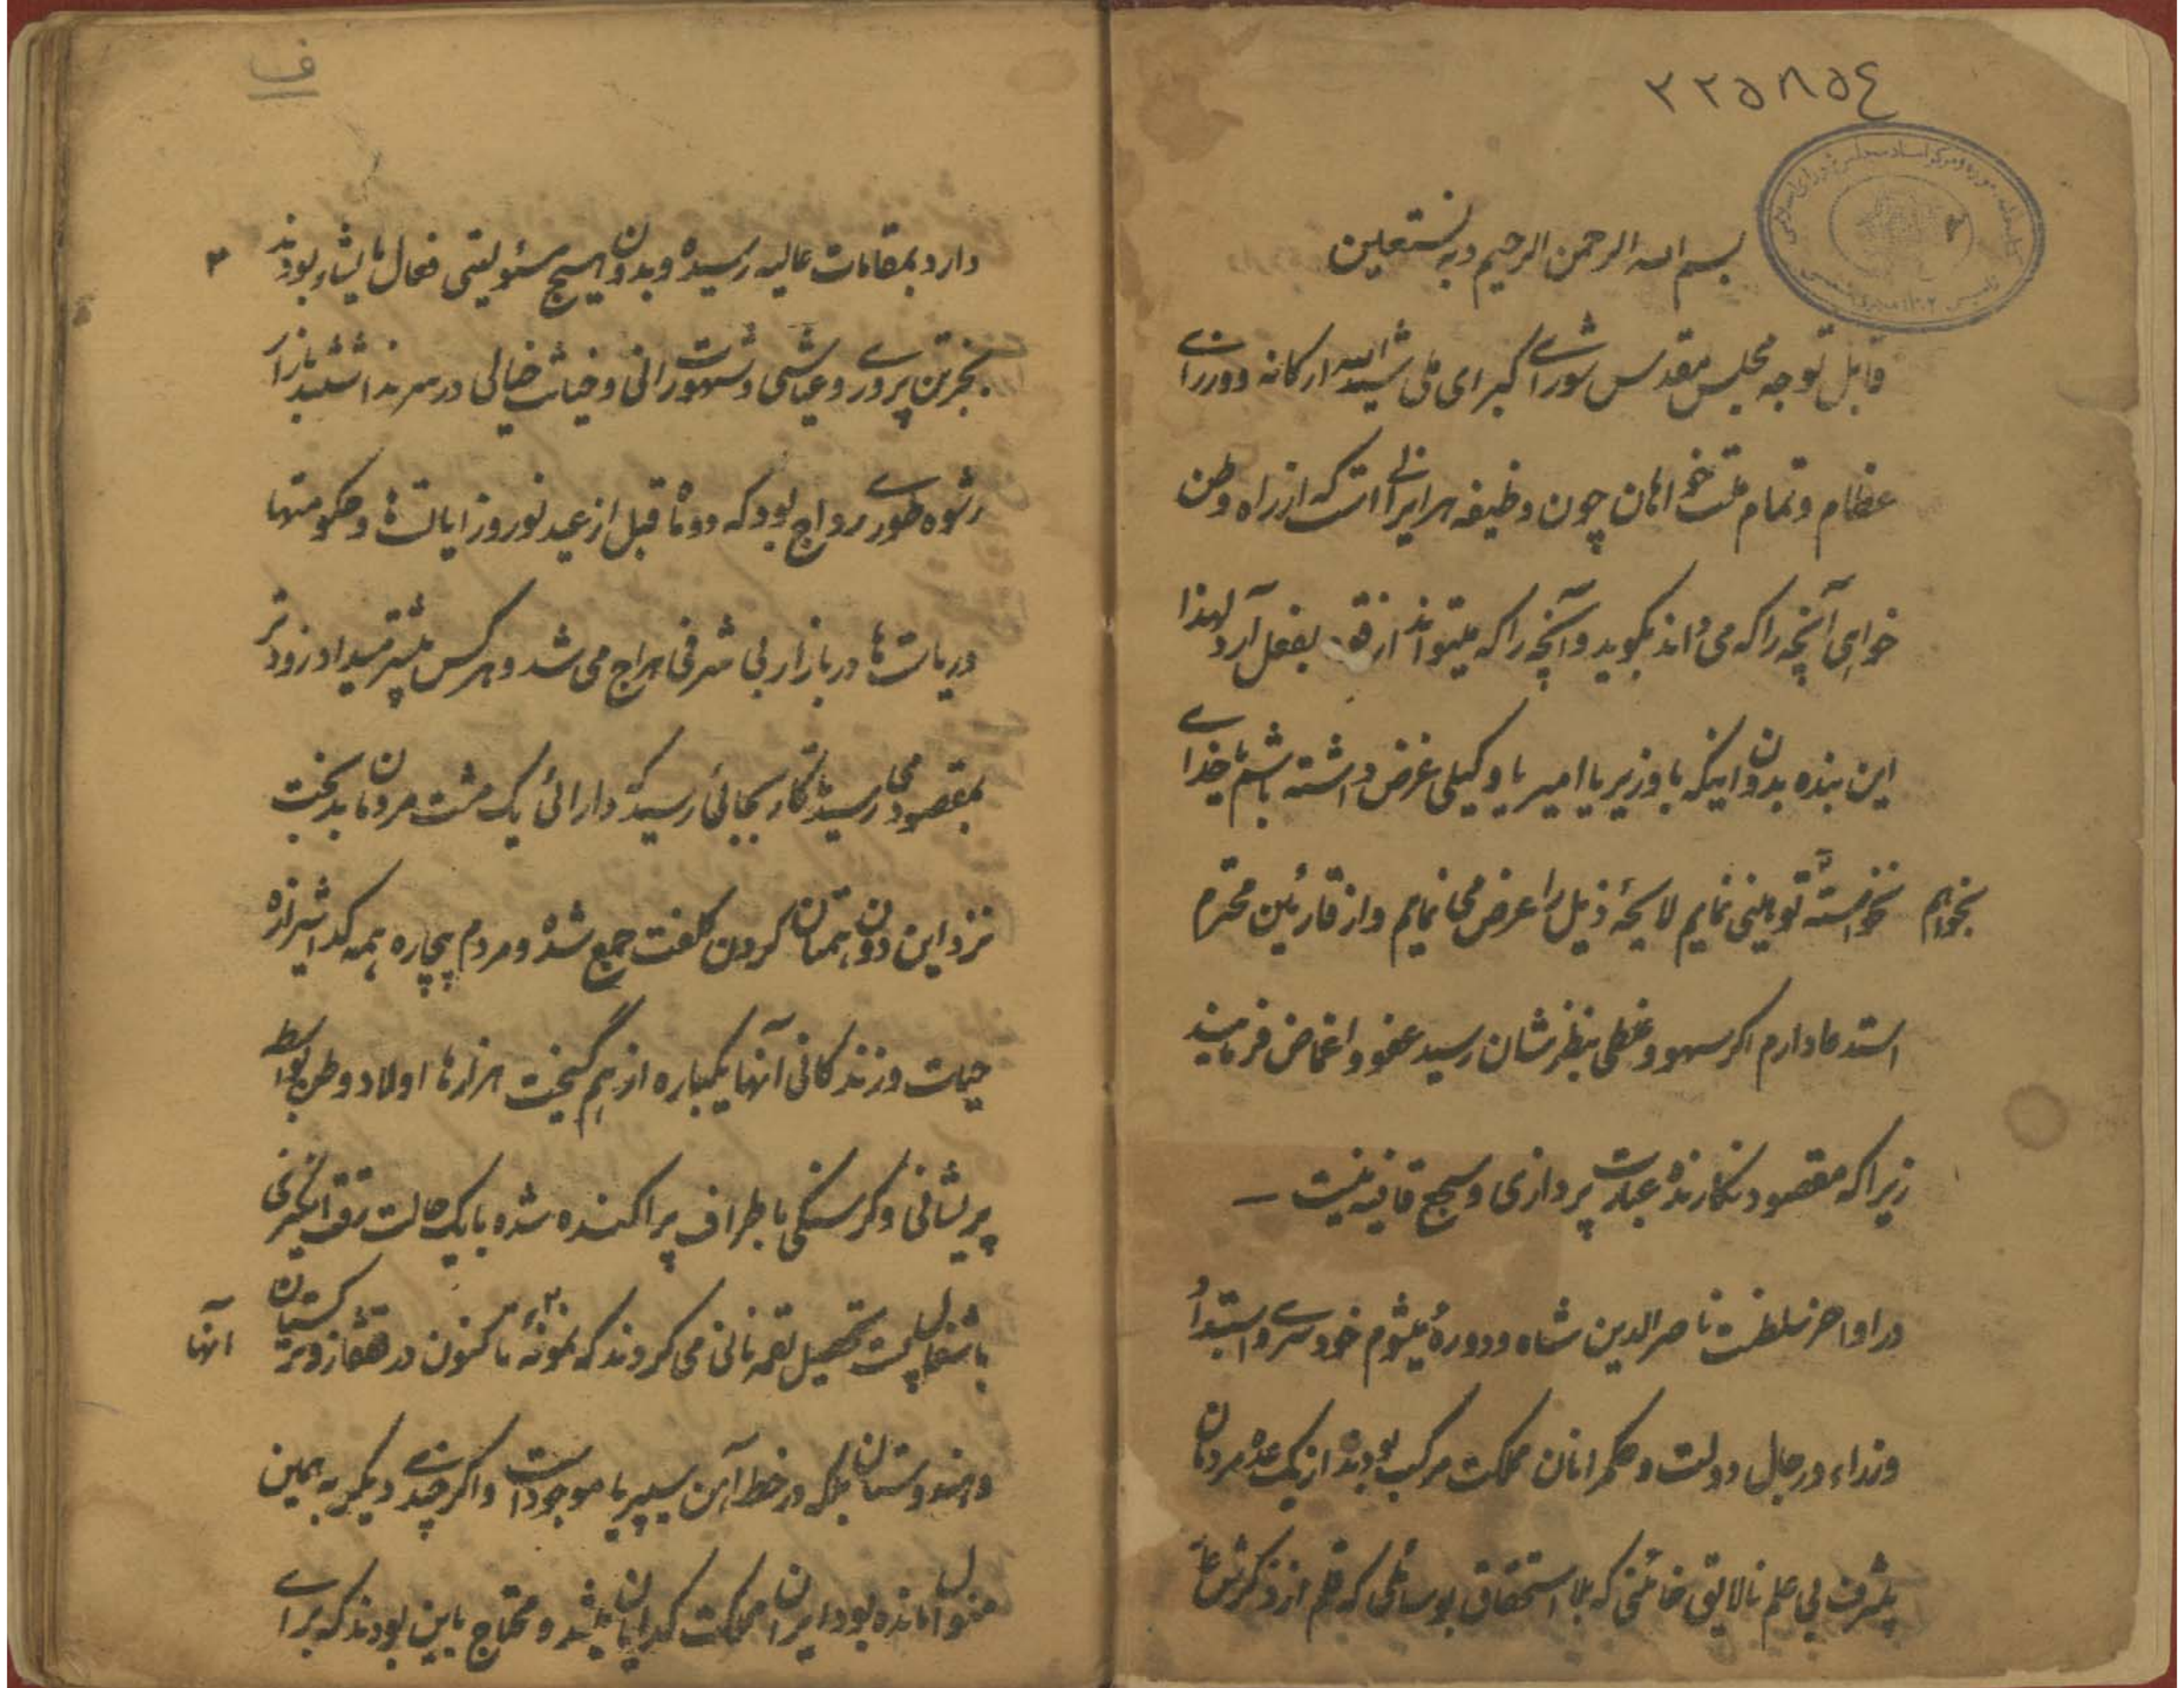 ۲۲۵۸۵٤
بسم الله الرحمن الرحیم وبه نستعین
قابل توجه مجلس مقدس شورای کبرای ملی شید الله ارکانه و وزرای
عظام و تمام ملت خواهان چون وظیفه هر ایرانی است که از راه وطن
خواهی آنچه را که می داند بگوید و آنچه را که میتواند از قوه بفعل آرد لهذا
این بنده بدون اینکه با وزیر یا امیر یا وکیلی غرض داشته باشم یا خدای
نخواسته توهینی نمایم لایحهٔ ذیل را عرض می نمایم و از قارئین محترم بخواهم
استدعا دارم اگر سهو و غلطی بنظرشان رسید عفو و اغماض فرمایند
زیرا که مقصود نگارنده عبارت پردازی و سجع قافیه نیست —
در اواخر سلطنت ناصرالدین شاه و دوره میشوم خودسری و استبداد
وزراء و رجال دولت و حکمرانان مملکت مرکب بودند از یک عده مردمان
بیشرف بی علم نالایق خائنی که بلا استحقاق بوسائلی که قلم از ذکرش عار
ف
۲
دارد بمقامات عالیه رسیده و بدون هیچ مسئولیتی فعال مایشاء بودند
بجز تن پروری و عیاشی و شهوت رانی و خباثت خیالی در سر نداشتند بازار
رشوه طوری رواج بود که دو ماه قبل از عید نوروز ایالت ها و حکومتها
در بازار بی شرفی هراج می شد و هر کس بیشتر میداد زودتر
بمقصود می رسید کار بجائی رسید که دارائی یک مشت مردمان بدبخت
نزد این دون همتان گردن کلفت جمع شده و مردم بیچاره همه گدا شیرازه
حیات و زندگانی آنها یکباره از هم گسیخت هزارها اولاد وطن بواسطه
پریشانی و گرسنگی باطراف پراکنده شده با یک حالت رقت انگیزی
باشغال پست تحصیل لقمه نانی می کردند که نمونهٔ آنها تا کنون در قفقاز و ترکستان
و هندوستان بلکه در خط آهن سیبیریا موجود است و اگر چندی دیگر به همین
منوال مانده بود ایران مملکت گدایان میشد و محتاج باین بودند که برای